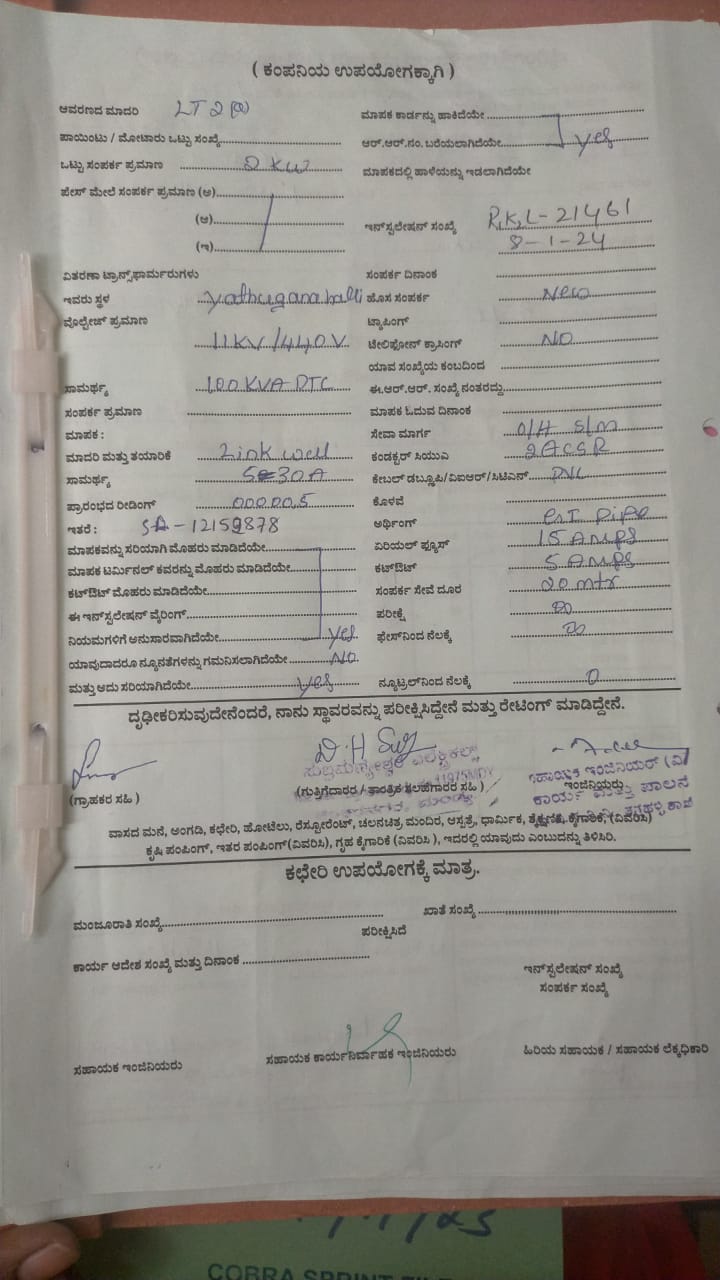 ( ಕಂಪನಿಯ ಉಪಯೋಗಕ್ಕಾಗಿ )
ಆವರಣದ ಮಾದರಿ LT 2 (a)
ಮಾಪಕ ಕಾರ್ಡನ್ನು ಹಾಕಿದೆಯೇ
ಪಾಯಿಂಟು / ಮೋಟಾರು ಒಟ್ಟು ಸಂಖ್ಯೆ
ಆರ್.ಆರ್.ನಂ. ಬರೆಯಲಾಗಿದೆಯೇ yes
ಒಟ್ಟು ಸಂಪರ್ಕ ಪ್ರಮಾಣ 2 KW
ಮಾಪಕದಲ್ಲಿ ಹಾಳೆಯನ್ನು ಇಡಲಾಗಿದೆಯೇ
ಪೇಸ್ ಮೇಲೆ ಸಂಪರ್ಕ ಪ್ರಮಾಣ (ಅ)
(ಆ)
(ಇ)
ಇನ್‌ಸ್ಟಲೇಷನ್ ಸಂಖ್ಯೆ R,K,L-21461
8-1-24
ವಿತರಣಾ ಟ್ರಾನ್ಸ್‌ಫಾರ್ಮರುಗಳು
ಸಂಪರ್ಕ ದಿನಾಂಕ
ಇವರು ಸ್ಥಳ Yadhuganahalli
ಹೊಸ ಸಂಪರ್ಕ New
ವೊಲ್ಟೇಜ್ ಪ್ರಮಾಣ
ಟ್ಯಾಪಿಂಗ್
11KV/440V
ಟೆಲಿಫೋನ್ ಕ್ರಾಸಿಂಗ್ NO
ಯಾವ ಸಂಖ್ಯೆಯ ಕಂಬದಿಂದ
ಸಾಮರ್ಥ್ಯ 100 KVA DTC
ಈ.ಆರ್.ಆರ್. ಸಂಖ್ಯೆ ನಂತರದ್ದು
ಸಂಪರ್ಕ ಪ್ರಮಾಣ
ಮಾಪಕ ಓದುವ ದಿನಾಂಕ
ಮಾಪಕ :
ಸೇವಾ ಮಾರ್ಗ O/H S/M
ಮಾದರಿ ಮತ್ತು ತಯಾರಿಕೆ Zink well
ಕಂಡಕ್ಟರ್ ಸಿಯುಎ 2 ACSR
ಸಾಮರ್ಥ್ಯ 5-30A
ಕೇಬಲ್ ಡಬ್ಲ್ಯೂಪಿ/ವಿಐಆರ್/ಸಿಟಿಎಸ್
ಪ್ರಾರಂಭದ ರೀಡಿಂಗ್ 000005
ಕೊಳವೆ
ಇತರೆ : SA-12159878
ಅರ್ಥಿಂಗ್ GI Pipe
ಮಾಪಕವನ್ನು ಸರಿಯಾಗಿ ಮೊಹರು ಮಾಡಿದೆಯೇ
ಏರಿಯಲ್ ಫ್ಯೂಸ್ 15 AMPS
ಮಾಪಕ ಟರ್ಮಿನಲ್ ಕವರನ್ನು ಮೊಹರು ಮಾಡಿದೆಯೇ
ಕಟೌಟ್ 5 AMPS
ಕಟ್‌ಔಟ್ ಮೊಹರು ಮಾಡಿದೆಯೇ
ಸಂಪರ್ಕ ಸೇವೆ ದೂರ 20 mtr
ಈ ಇನ್‌ಸ್ಟಲೇಷನ್ ವೈರಿಂಗ್
ಪರೀಕ್ಷೆ ∞
ನಿಯಮಗಳಿಗೆ ಅನುಸಾರವಾಗಿದೆಯೇ yes
ಫೇಸ್‌ನಿಂದ ನೆಲಕ್ಕೆ ∞
ಯಾವುದಾದರೂ ನ್ಯೂನತೆಗಳನ್ನು ಗಮನಿಸಲಾಗಿದೆಯೇ NO
ಮತ್ತು ಅದು ಸರಿಯಾಗಿದೆಯೇ yes
ನ್ಯೂಟ್ರಲ್‌ನಿಂದ ನೆಲಕ್ಕೆ 0
ದೃಢೀಕರಿಸುವುದೇನೆಂದರೆ, ನಾನು ಸ್ಥಾವರವನ್ನು ಪರೀಕ್ಷಿಸಿದ್ದೇನೆ ಮತ್ತು ರೇಟಿಂಗ್ ಮಾಡಿದ್ದೇನೆ.
ಎಲೆಕ್ಟ್ರಿಕಲ್ಸ್
(ಗ್ರಾಹಕರ ಸಹಿ )
(ಗುತ್ತಿಗೆದಾರರ / ತಾಂತ್ರಿಕ ಸಲಹೆಗಾರರ ಸಹಿ )
ಸಹಾಯಕ ಇಂಜಿನಿಯರ್ (ವಿ)
ಇಂಜಿನಿಯರರು
ಕಾರ್ಯ ಮತ್ತು ಪಾಲನೆ
ವಾಸದ ಮನೆ, ಅಂಗಡಿ, ಕಛೇರಿ, ಹೋಟೆಲು, ರೆಸ್ಟೋರೆಂಟ್, ಚಲನಚಿತ್ರ ಮಂದಿರ, ಆಸ್ಪತ್ರೆ, ಧಾರ್ಮಿಕ, ಶೈಕ್ಷಣಿಕ, ಕೈಗಾರಿಕೆ, (ವಿವರಿಸಿ)
ಕೃಷಿ ಪಂಪಿಂಗ್, ಇತರ ಪಂಪಿಂಗ್(ವಿವರಿಸಿ), ಗೃಹ ಕೈಗಾರಿಕೆ (ವಿವರಿಸಿ ), ಇದರಲ್ಲಿ ಯಾವುದು ಎಂಬುದನ್ನು ತಿಳಿಸಿರಿ.
ಕಛೇರಿ ಉಪಯೋಗಕ್ಕೆ ಮಾತ್ರ.
ಮಂಜೂರಾತಿ ಸಂಖ್ಯೆ
ಖಾತೆ ಸಂಖ್ಯೆ
ಪರೀಕ್ಷಿಸಿದೆ
ಕಾರ್ಯ ಆದೇಶ ಸಂಖ್ಯೆ ಮತ್ತು ದಿನಾಂಕ
ಇನ್‌ಸ್ಟಲೇಷನ್ ಸಂಖ್ಯೆ
ಸಂಪರ್ಕ ಸಂಖ್ಯೆ
ಸಹಾಯಕ ಇಂಜಿನಿಯರು
ಸಹಾಯಕ ಕಾರ್ಯನಿರ್ವಾಹಕ ಇಂಜಿನಿಯರು
ಹಿರಿಯ ಸಹಾಯಕ / ಸಹಾಯಕ ಲೆಕ್ಕಧಿಕಾರಿ